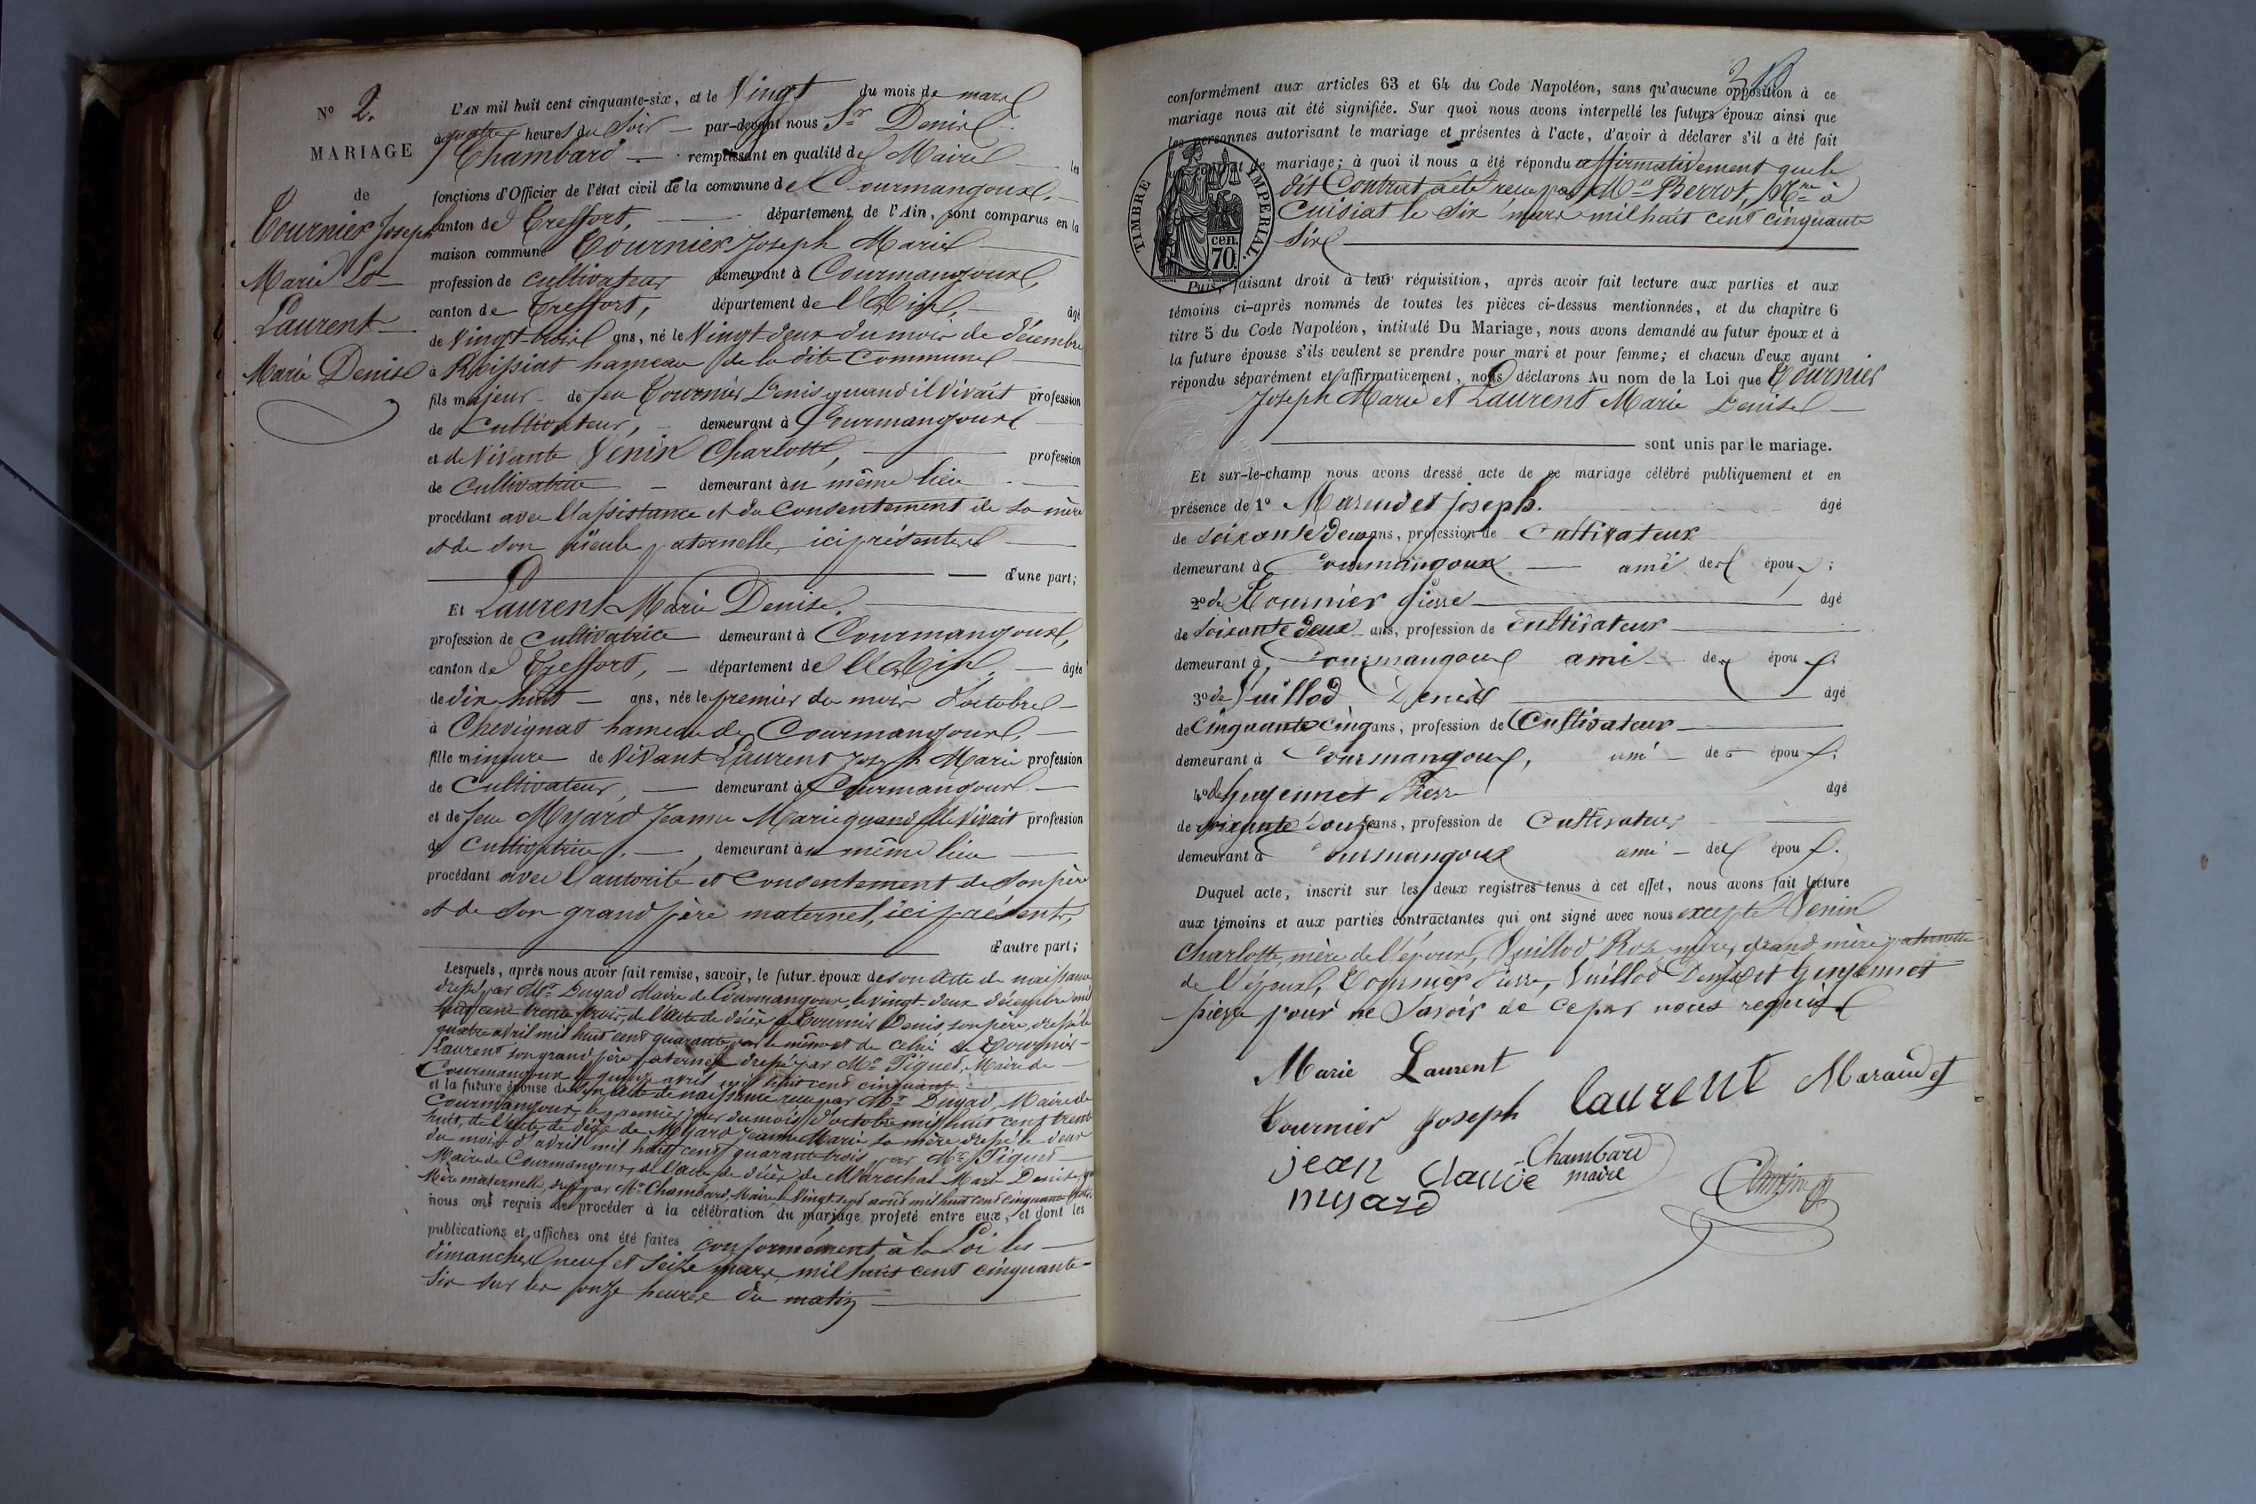 N° 2.
MARIAGE
de
Tournier Joseph
Marie Et
Laurent
Marie Denise
L'AN mil huit cent cinquante-six, et le Vingt du mois de mars
à quatre heures du Soir par-devant nous Sr Denis
Chambard remplissant en qualité de Maire les
fonctions d'Officier de l'état civil de la commune de Courmangoux,
canton de Treffort, département de l'Ain, sont comparus en la
maison commune Tournier Joseph Marie
profession de cultivateur demeurant à Courmangoux,
canton de Treffort, département de l'Ain, âgé
de Vingt-trois ans, né le Vingt deux du mois de décembre
à Roissiat hameau de la dite Commune
fils majeur de feu Tournier Denis quand il Vivait profession
de Cultivateur, demeurant à Courmangoux
et de Vivante Venin Charlotte, profession
de Cultivatrice demeurant àu même lieu
procédant avec l'assistance et du Consentement de sa mère
et de son aieule paternelle, ici présentes
d'une part;
Et Laurent Marie Denise,
profession de Cultivatrice demeurant à Courmangoux,
canton de Treffort, département de l'Ain, âgée
de dix huit ans, née le premier du mois d'octobre
à Chevignat hameau de Courmangoux,
fille mineure de Vivant Laurent Joseph Marie profession
de Cultivateur, demeurant à Courmangoux
et de feue Myard Jeanne Marie quand elle Vivait profession
de Cultivatrice, demeurant àu même lieu
procédant avec l'autorité et Consentement de Son père
et de Son grand père maternel, ici présents,
d'autre part;
Lesquels, après nous avoir fait remise, savoir, le futur époux de son acte de naissance
dressé par Mr Dugad Maire de Courmangoux, le vingt deux décembre mil
huit cent trente trois, de l'acte de décès de Tournier Denis, son père, dressé le
quatre avril mil huit cent quarante, par le même et de celui de Tournier
Laurent son grand père paternel dressé par Mr Piguet, Maire de
Courmangoux le quinze avril mil huit cent cinquante
et la future épouse de son acte de naissance reçu par Mr Dugad, Maire de
Courmangoux, le premier jour du mois d'octobre mil huit cent trente
huit, de l'acte de décès de Myard Jeanne Marie sa mère dressé le deux
du mois d'avril mil huit cent quarante trois par Mr Piguet
Maire de Courmangoux, de l'acte de décès de Maréchal Marie Denise, gr
Mère maternelle, dressé par Mr Chambard, Maire le Vingt sept août mil huit cent cinquante
nous ont requis de procéder à la célébration du mariage projeté entre eux, et dont les
publications et affiches ont été faites conformément à la Loi les
dimanches neuf et Seize mars mil huit cent cinquante-
six sur les onze heures du matin
conformément aux articles 63 et 64 du Code Napoléon, sans qu'aucune opposition à ce
mariage nous ait été signifiée. Sur quoi nous avons interpellé les futurs époux ainsi que
les personnes autorisant le mariage et présentes à l'acte, d'avoir à déclarer s'il a été fait
un contrat de mariage; à quoi il nous a été répondu affirmativement que le
dit Contrat a été reçu par Me Perrot, Nre à
Cuisiat le Six mars mil huit cent cinquante
Six
TIMBRE IMPERIAL.
70. cen.
Puis, faisant droit à leur réquisition, après avoir fait lecture aux parties et aux
témoins ci-après nommés de toutes les pièces ci-dessus mentionnées, et du chapitre 6
titre 5 du Code Napoléon, intitulé Du Mariage, nous avons demandé au futur époux et à
la future épouse s'ils veulent se prendre pour mari et pour femme; et chacun d'eux ayant
répondu séparément et affirmativement, nous déclarons Au nom de la Loi que Tournier
Joseph Marie et Laurent Marie Denise
sont unis par le mariage.
Et sur-le-champ nous avons dressé acte de ce mariage célébré publiquement et en
présence de 1° Maraudet Joseph. âgé
de Soixante deux ans, profession de Cultivateur
demeurant à Courmangoux ami des époux;
2° de Tournier Pierre âgé
de Soixante deux ans, profession de Cultivateur
demeurant à Courmangoux ami des époux;
3° de Vuillod Denis âgé
de Cinquante Cinq ans, profession de Cultivateur
demeurant à Courmangoux, ami des époux;
4° de Guyennet Pierre âgé
de soixante Douze ans, profession de Cultivateur
demeurant à Courmangoux ami des époux.
Duquel acte, inscrit sur les deux registres tenus à cet effet, nous avons fait lecture
aux témoins et aux parties contractantes qui ont signé avec nous excepté Venin
Charlotte, mère de l'époux, Vuillod grand mère paternelle
de l'époux, Tournier Pierre, Vuillod Denis et Guyennet
pierre pour ne Savoir de ce par nous requis
Marie Laurent
Tournier Joseph Laurent Maraudet
jean Claude Chambard
myard maire